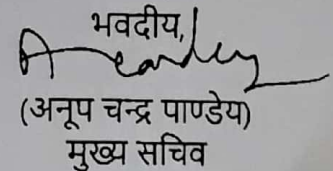 भवदीय,
(अनूप चन्द्र पाण्डेय)
मुख्य सचिव